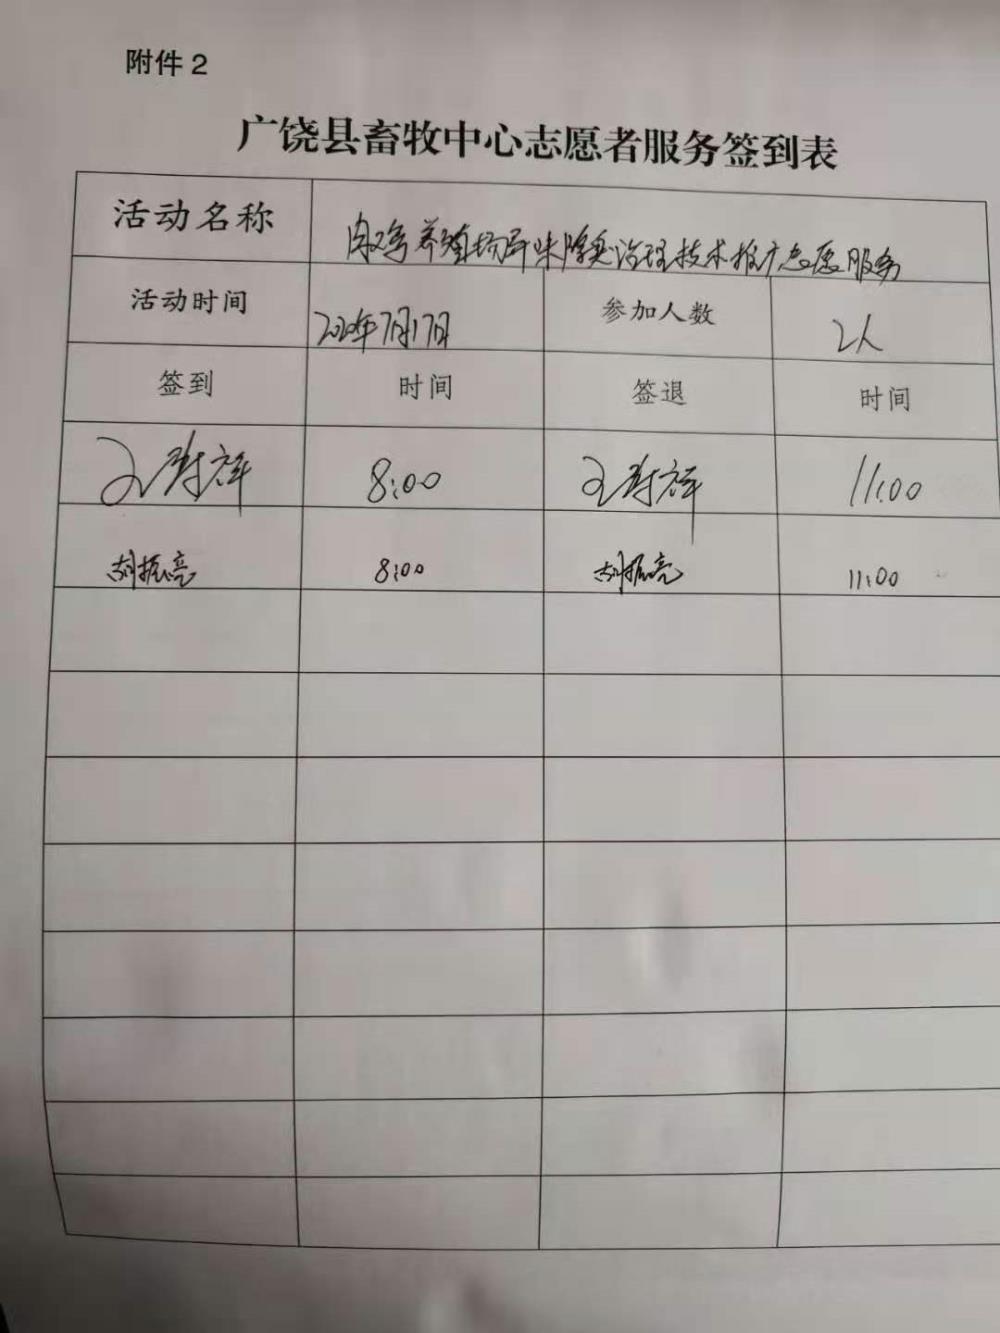 附件 2
广饶县畜牧中心志愿者服务签到表
活动名称 肉鸡养殖场异味除臭治理技术推广志愿服务
活动时间 2020年7月17日 参加人数 2人
签到 时间 签退 时间
8:00 11:00
胡振亮 8:00 胡振亮 11:00